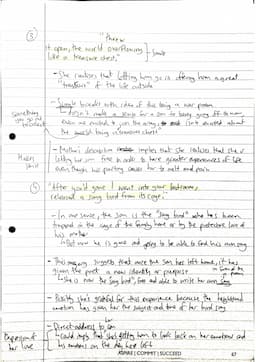 ③ "threw
it open, the world overflowing
like a treasure chest," } simile
- She realises that letting him go is offering him a great
"treasure" of the life outside
- Simile breaks with idea of this being a war poem
- doesn't make sense for a son to be going off to war,
isn't excited about
the world being a treasure chest"
- Mother's description implies that she realises that she is
letting her son free in order to have greater experiences of life
even though his parting causes her to wait and pain
④ "After you'd gone I went into your bedroom,
released a song bird from its cage."
- In one sense, the son is the "song bird" who has been
trapped in the cage of the family home or by the protective love of
his mother
- But now he is gone and going to be able to find his own song
- This suggests that once the son has left home, it has
given the poet a new identity or purpose
- she is now the "song bird", free and able to write her own song
- Possibly she's grateful for this experience because the heightened
emotion has given her the subject and tone of her final song
- Direct address to son
- Could imply that she's getting him to look back on her emotions and
his emotions on the day he left
her love
ASPIRE | COMMIT | SUCCEED
67